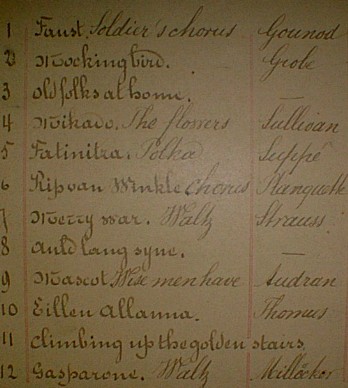 1 Faust. Soldier's chorus Gounod
2 Mocking bird. Grobe
3 Old folks at home. —
4 Mikado. The flowers Sullivan
5 Fatinitza. Polka Suppé
6 Rip van Winkle chorus Planquette
7 Merry war. Waltz Strauss.
8 Auld lang syne. —
9 Mascot. Wise men have Audran
10 Eillen Allanna. Thomas
11 Climbing up the golden stairs.
12 Gasparone. Waltz Millöcker